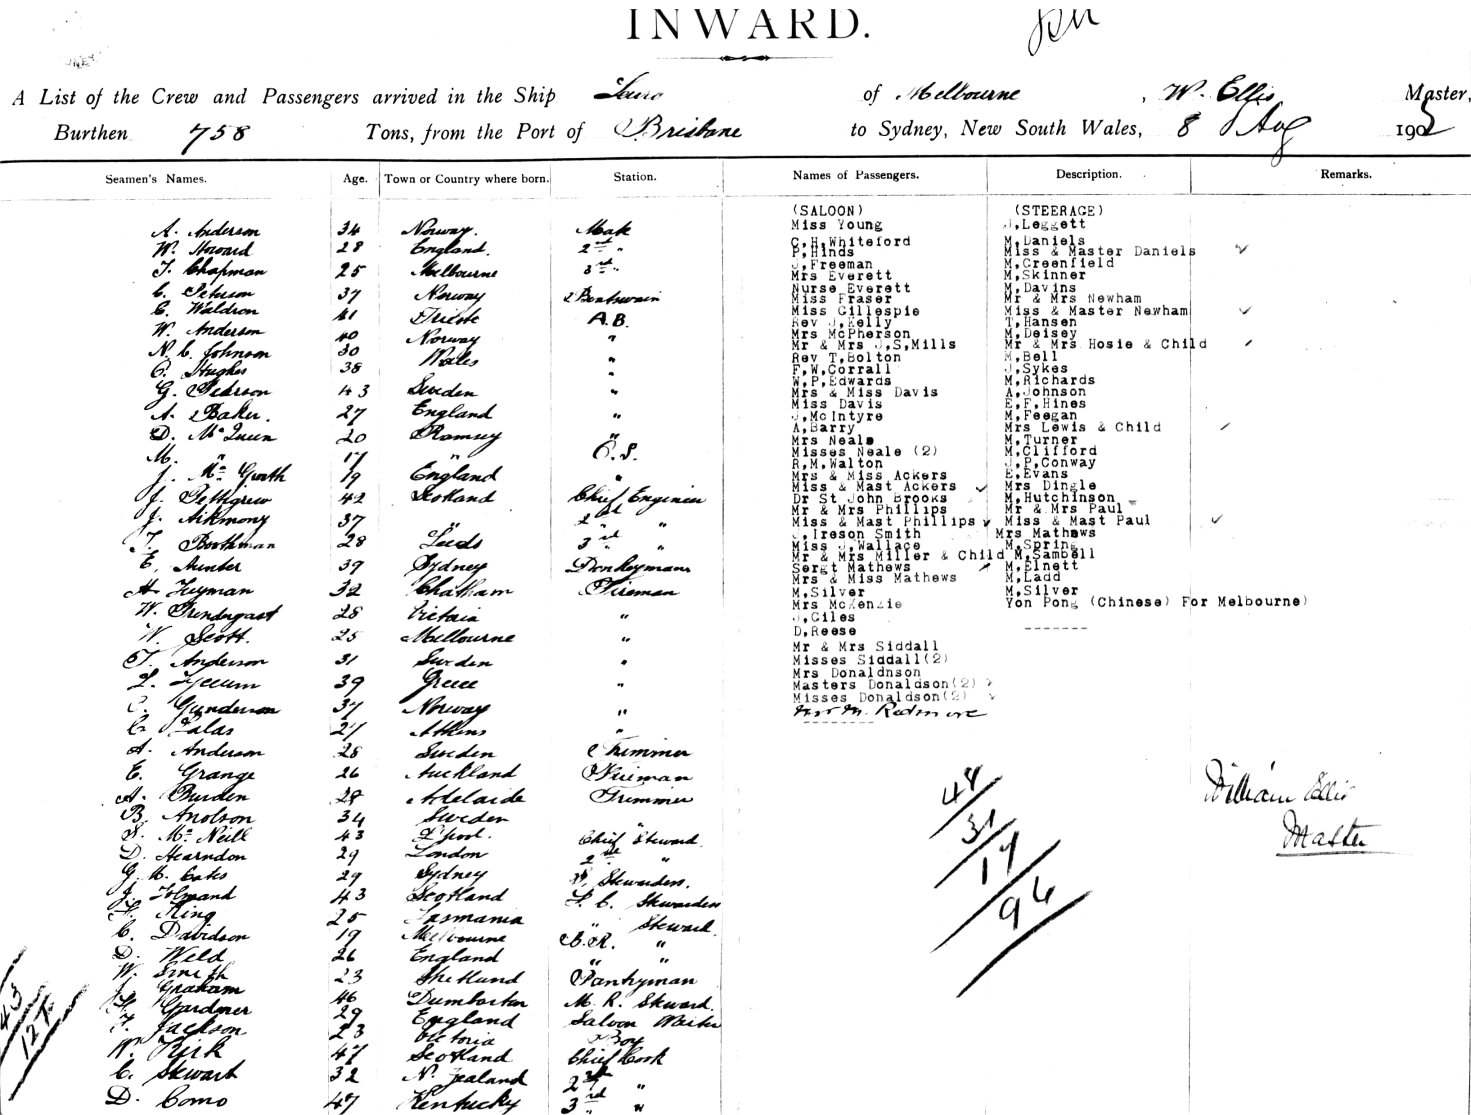 INWARD.
A List of the Crew and Passengers arrived in the Ship of Melbourne, W. Ellis Master,
Burthen 758 Tons, from the Port of Brisbane to Sydney, New South Wales, 8 Aug 190
Seamen's Names. Age. Town or Country where born. Station. Names of Passengers. Description. Remarks.
A. Anderson 34 Norway. Mate
W. Howard 28 England. 2nd "
T. Chapman 25 Melbourne 3rd "
C. Peterson 37 Norway Boatswain
C. Waldron 41 Trieste A.B.
W. Anderson 40 Norway "
N. C. Johnson 30 Wales "
O. Hughes 38 "
G. Pearson 43 Sweden "
A. Baker. 27 England "
D. McQueen 20 Ramsey "
M. " 17 " O.S.
J. McGrath 19 England "
J. Pettigrew 42 Scotland Chief Engineer
J. 37 " 2nd "
T. Boothman 28 Leeds 3rd "
E. Hunter 39 Sydney Donkeyman
H. Heyman 32 Chatham Fireman
W. 28 Victoria "
W. Scott. 25 Melbourne "
T. Anderson 31 Sweden "
39 Greece "
C. Gunderson 37 Norway "
C. 27 Athens "
A. Anderson 28 Sweden Trimmer
E. Grange 26 Auckland Fireman
A. Burden 28 Adelaide Trimmer
B. 34 Sweden "
S. McNeill 43 L'pool. Chief Steward.
D. Hearndon 29 London 2nd "
G. M. 29 Sydney Stewardess.
J. 43 Scotland F. C. Stewardess
King 25 Tasmania " Steward.
C. Davidson 19 Melbourne B.R. "
D. Weld 26 England " "
W. Smith 23 Shetland Pantryman
J. Graham 46 Dumbarton M. R. Steward.
H. Gardner 29 England Saloon Waiter
F. Jackson 23 Victoria Boy
Wm Kirk 47 Scotland Chief Cook
C. Stewart 32 N. Zealand 2nd "
D. Como 47 Kentucky 3rd "
43
127
(SALOON)
Miss Young
C,H,Whiteford
P,Hinds
J,Freeman
Mrs Everett
Nurse Everett
Miss Fraser
Miss Gillespie
Rev J,Kelly
Mrs McPherson
Mr & Mrs J,S,Mills
Rev T,Bolton
F,W,Corrall
W,P,Edwards
Mrs & Miss Davis
Miss Davis
J,McIntyre
A,Barry
Mrs Neale
Misses Neale (2)
R,M,Walton
Mrs & Miss Ackers
Miss & Mast Ackers
Dr St John Brooks
Mr & Mrs Phillips
Miss & Mast Phillips
J,Ireson Smith
Miss J,Wallace
Mr & Mrs Miller & Child
Sergt Mathews
Mrs & Miss Mathews
M,Silver
Mrs McKenzie
J,Giles
D,Reese
Mr & Mrs Siddall
Misses Siddall(2)
Mrs Donaldnson
Masters Donaldson(2)
Misses Donaldson(2)
(STEERAGE)
J,Leggett
M,Daniels
Miss & Master Daniels
M,Greenfield
M,Skinner
M,Davins
Mr & Mrs Newham
Miss & Master Newham
T,Hansen
M,Deisey
Mr & Mrs Hosie & Child
M,Bell
J,Sykes
M,Richards
A,Johnson
E,F,Hines
M,Feegan
Mrs Lewis & Child
M,Turner
M,Clifford
J,P,Conway
E,Evans
Mrs Dingle
M,Hutchinson
Mr & Mrs Paul
Miss & Mast Paul
Mrs Mathews
M,Spring
M,Sambell
M,Elnett
M,Ladd
M,Silver
Yon Pong (Chinese) For Melbourne)
48
31
17
96
William Ellis
Master